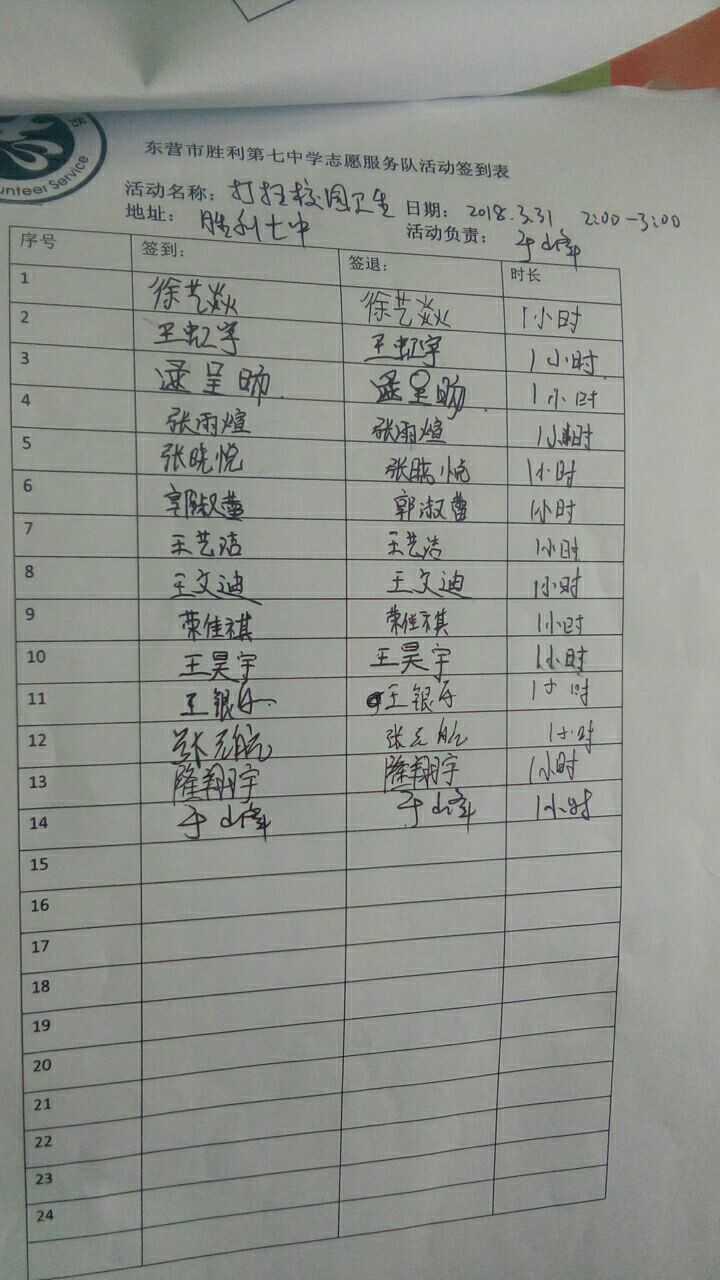 unteer Service
东营市胜利第七中学志愿服务队活动签到表
活动名称：打扫校园卫生 日期：2018.3.31 2:00-3:00
地址：胜利七中 活动负责：
序号 签到： 签退： 时长
1 徐艺焱 徐艺焱 1小时
2 王虹宇 王虹宇 1小时
3 逯呈旸 逯呈旸 1小时
4 张雨煊 张雨煊 1小时
5 张晓悦 张晓悦 1小时
6 郭淑蕾 郭淑蕾 1小时
7 王艺洁 王艺洁 1小时
8 王文迪 王文迪 1小时
9 荣佳祺 荣佳祺 1小时
10 王昊宇 王昊宇 1小时
11 王银 王银 1小时
12 张元航 张元航 1小时
13 隆翔宇 隆翔宇 1小时
14 1小时
15
16
17
18
19
20
21
22
23
24